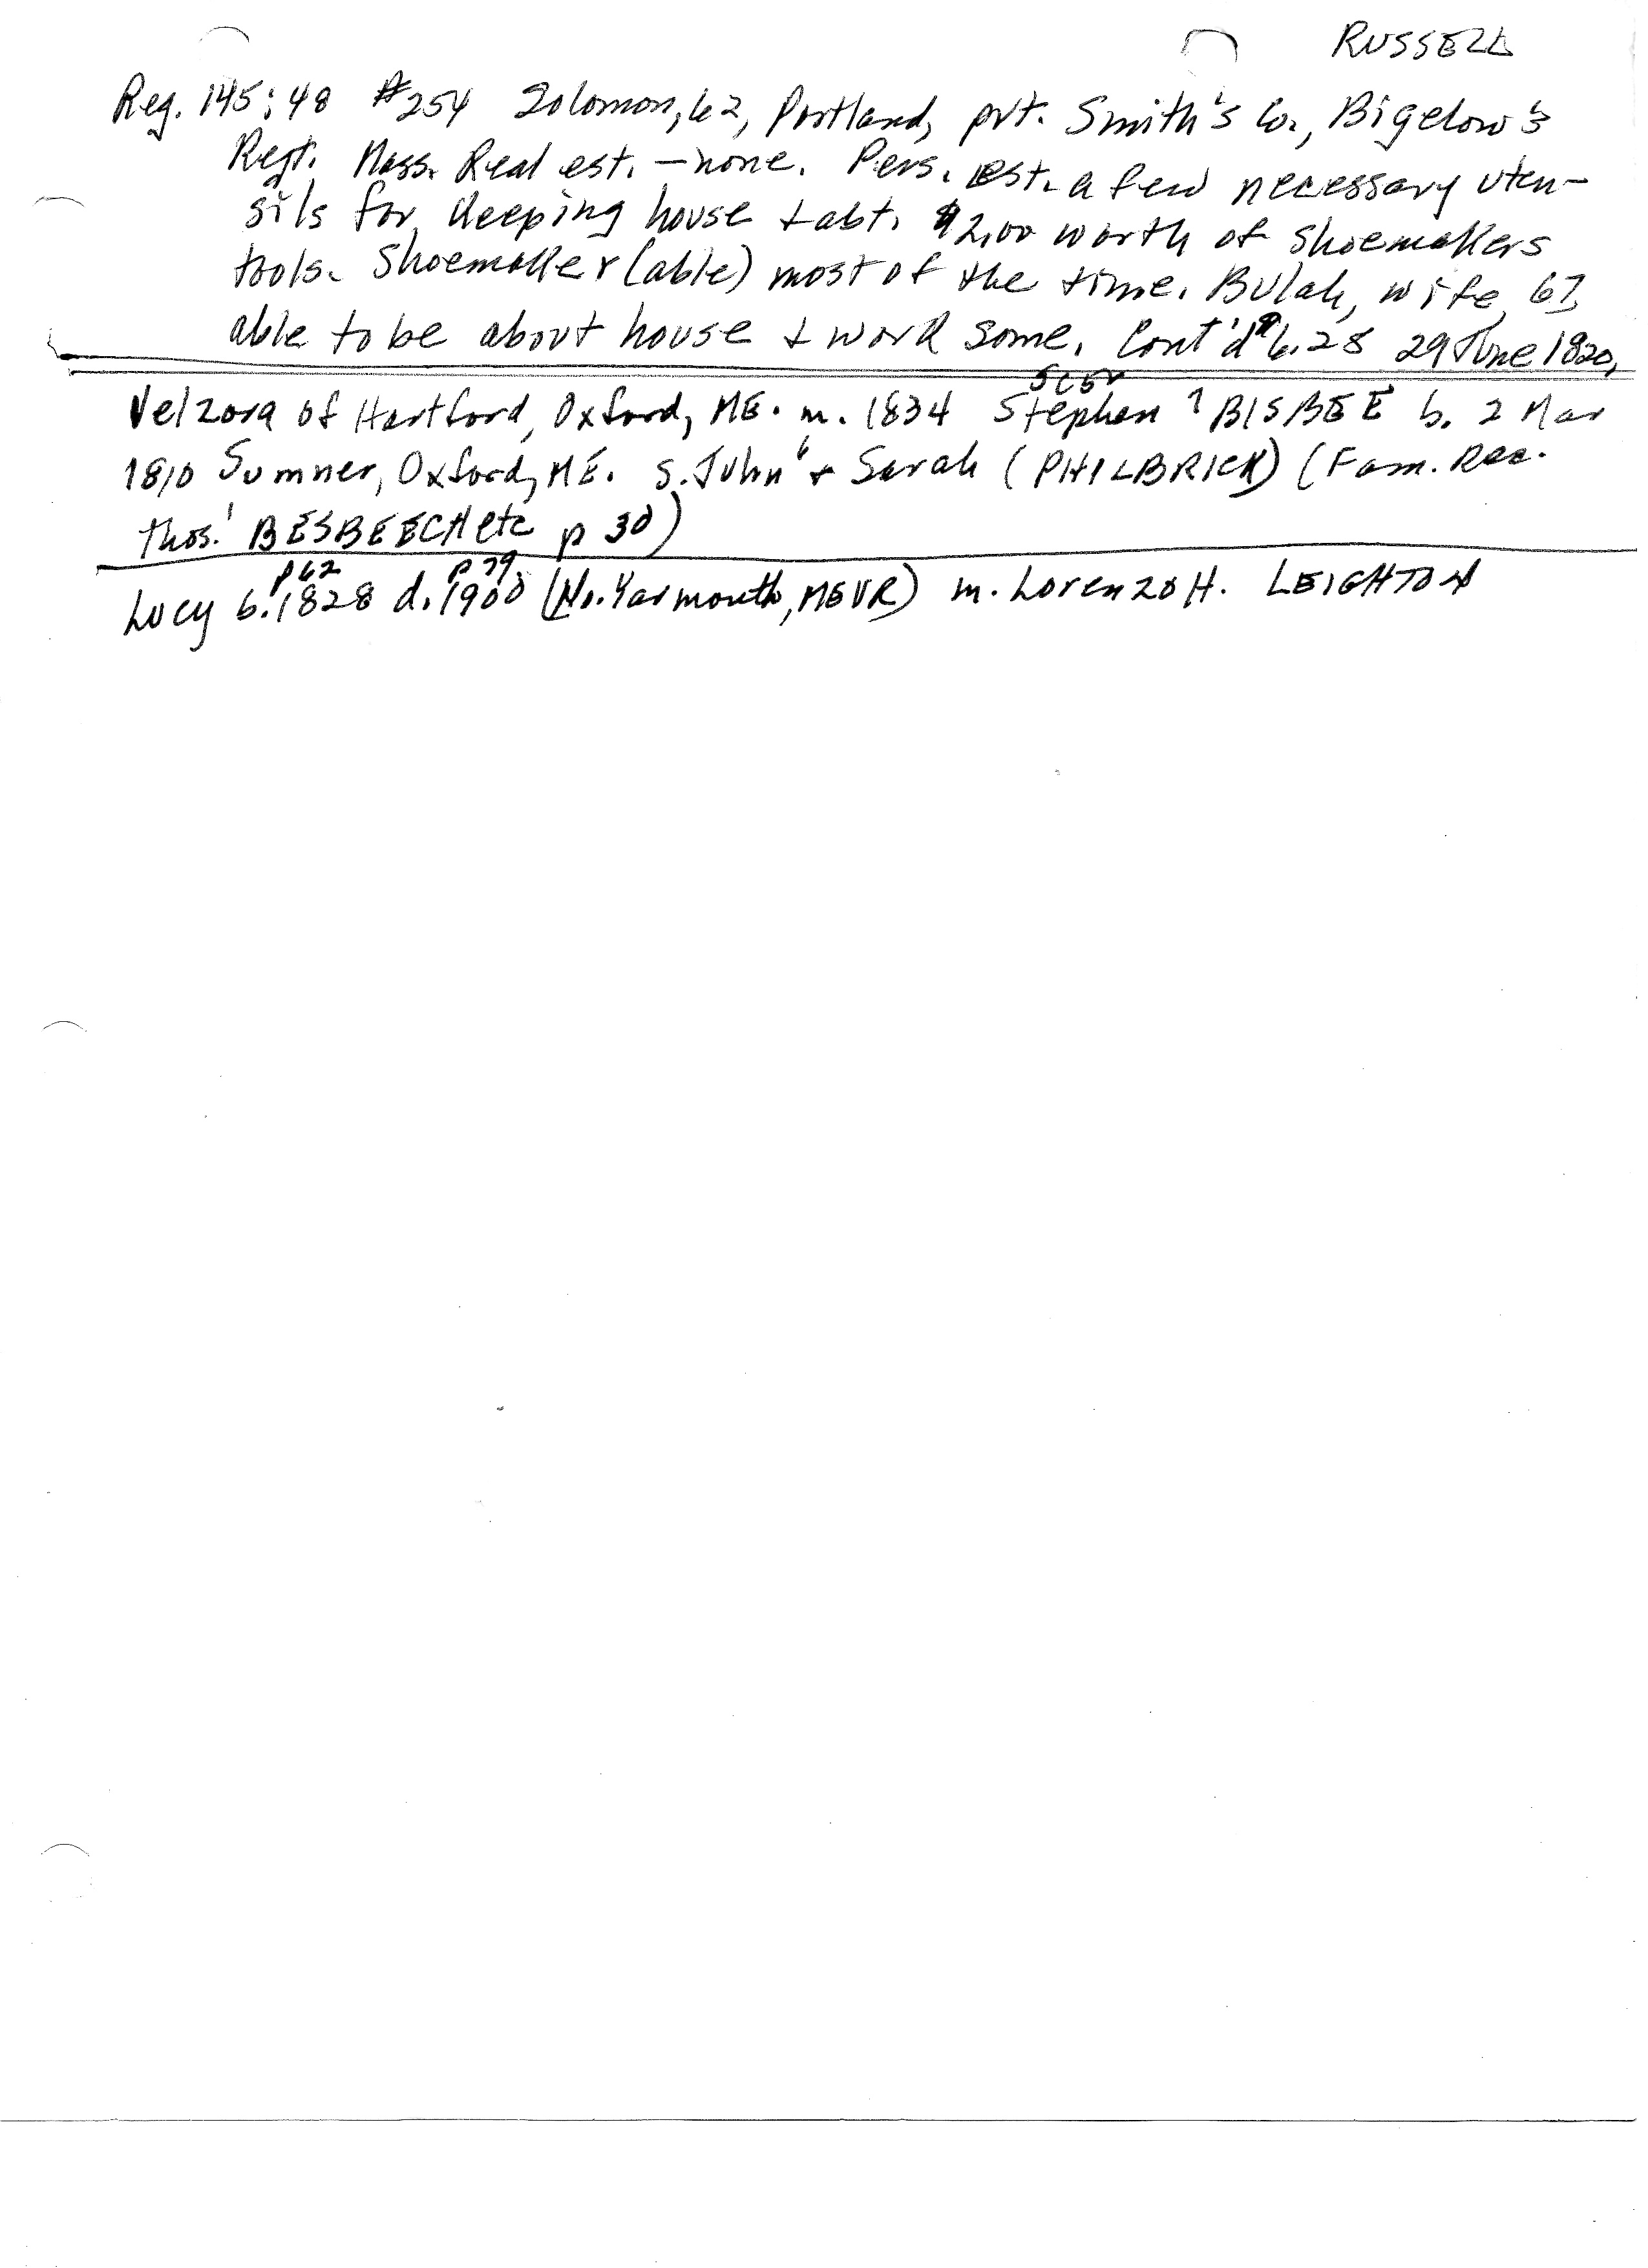 RUSSELL
Reg. 145:48 #254 Solomon, 62, Portland, pvt. Smith's Co., Bigelow's
Regt. Mass. Real est. - none. Pers. est. a few necessary uten-
sils for keeping house + abt. $2.00 worth of shoemakers
tools. Shoemaker (able) most of the time. Bulah, wife, 67,
able to be about house & work some. Cont'd 6.28 29 June 1820,
Velzora of Hartford, Oxford, ME. m. 1834 Stephen 7 BISBEE b. 2 Mar
1810 Sumner, Oxford, ME. s. John 6 + Sarah (PHILBRICK) (Fam. Rec.
Thos. 1 BESBEECH etc p 30)
p 62 p 79
Lucy b. 1828 d. 1900 (No. Yarmouth, MEVR) m. Lorenzo H. LEIGHTON